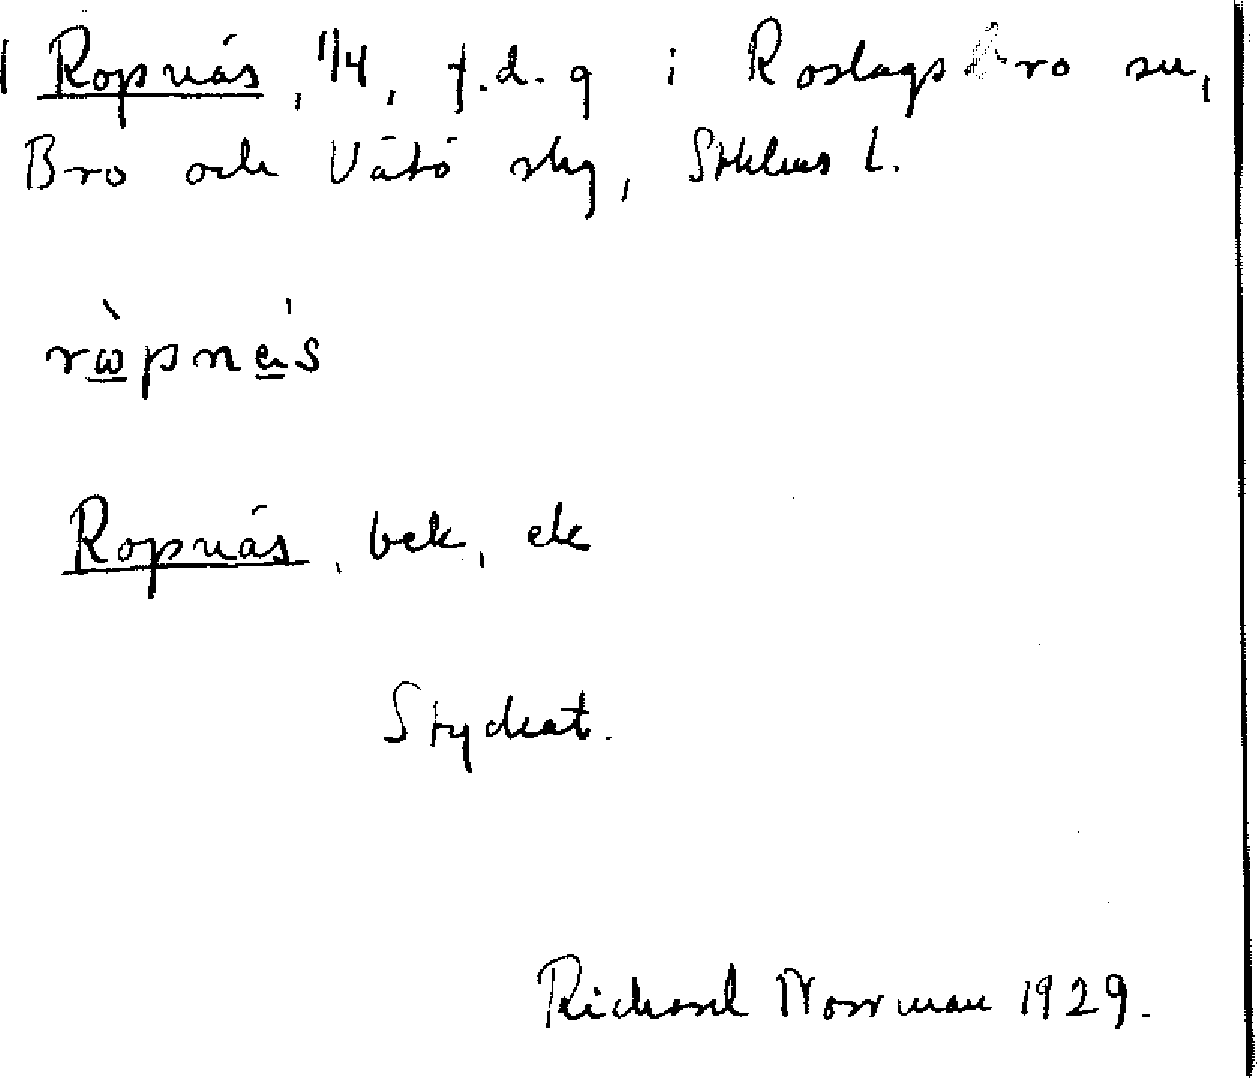 Ropnäs, 1/4, f.d. g i Roslags Bro sn,
Bro och Vätö skg, Sthlms L.
ròpnäs
Ropnäs, bek, ek
Styckat.
Richard Norrman 1929.